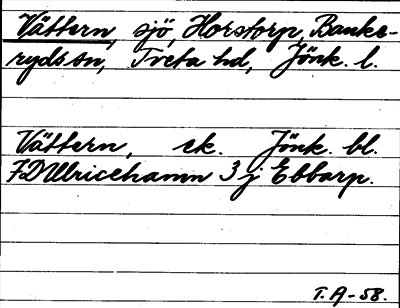 Vättern, sjö, Horstorp, Banke-
ryds sn, Tveta hd, Jönk. l.
Vättern, ek. Jönk. bl.
7D Ulricehamn 3 j Ebbarp.
T. A-58.